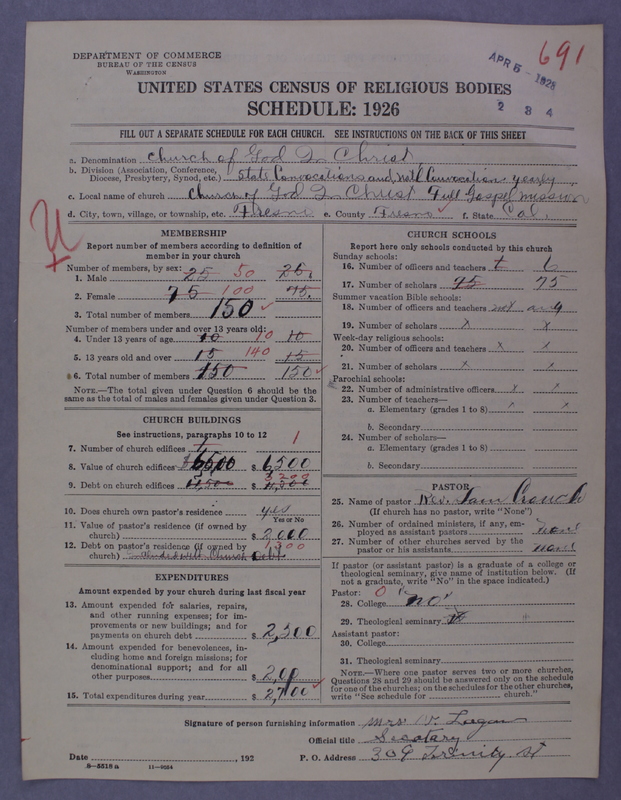 DEPARTMENT OF COMMERCE
BUREAU OF THE CENSUS
WASHINGTON
APR 5 - 1928
691
2 3 4
UNITED STATES CENSUS OF RELIGIOUS BODIES
SCHEDULE: 1926
FILL OUT A SEPARATE SCHEDULE FOR EACH CHURCH. SEE INSTRUCTIONS ON THE BACK OF THIS SHEET
a. Denomination Church of God In Christ
b. Division (Association, Conference, Diocese, Presbytery, Synod, etc.) State Convocations and Natl Convocations yearly
c. Local name of church Church of God In Christ Full Gospel Mission
d. City, town, village, or township, etc. Fresno e. County Fresno f. State Cal.
MEMBERSHIP
Report number of members according to definition of
member in your church
Number of members, by sex:
1. Male 25 50 25
2. Female 75 100 75
3. Total number of members 150
Number of members under and over 13 years old:
4. Under 13 years of age 10 10 10
5. 13 years old and over 15 140 15
6. Total number of members 150 150
NOTE.—The total given under Question 6 should be
same as the total of males and females given under Question 3.
CHURCH BUILDINGS
See instructions, paragraphs 10 to 12
7. Number of church edifices 1 1
8. Value of church edifices $ 6500 $ 6,500
9. Debt on church edifices $
10. Does church own pastor's residence yes
Yes or No
11. Value of pastor's residence (if owned by
church) $ 2,000
12. Debt on pastor's residence (if owned by
church) Church debt
EXPENDITURES
Amount expended by your church during last fiscal year
13. Amount expended for salaries, repairs,
and other running expenses; for im-
provements or new buildings; and for
payments on church debt $ 2,500
14. Amount expended for benevolences, in-
cluding home and foreign missions; for
denominational support; and for all
other purposes $ 200
15. Total expenditures during year $ 2700
CHURCH SCHOOLS
Report here only schools conducted by this church
Sunday schools:
16. Number of officers and teachers 6 6
17. Number of scholars 95 75
Summer vacation Bible schools:
18. Number of officers and teachers not any
19. Number of scholars x x
Week-day religious schools:
20. Number of officers and teachers x x
21. Number of scholars x x
Parochial schools:
22. Number of administrative officers x x
23. Number of teachers—
a. Elementary (grades 1 to 8)
b. Secondary
24. Number of scholars—
a. Elementary (grades 1 to 8)
b. Secondary
PASTOR
25. Name of pastor Rev. Sam Crouch
(If church has no pastor, write "None")
26. Number of ordained ministers, if any, em-
ployed as assistant pastors none
27. Number of other churches served by the
pastor or his assistants none
If pastor (or assistant pastor) is a graduate of a college or
theological seminary, give name of institution below. (If
not a graduate, write "No" in the space indicated.)
Pastor: 0
28. College no
29. Theological seminary
Assistant pastor:
30. College
31. Theological seminary
NOTE.—Where one pastor serves two or more churches,
Questions 28 and 29 should be answered only on the schedule
for one of the churches; on the schedules for the other churches,
write "See schedule for church."
Signature of person furnishing information Mrs V. Logan
Official title Secotary
Date , 192 P. O. Address 309 Trinity St
8—5518 a 11—9054